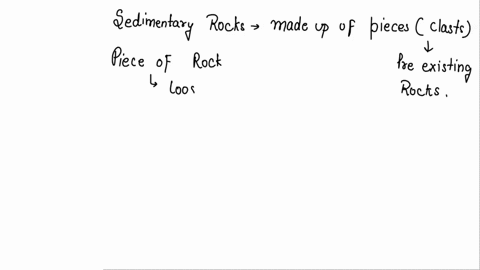 Sedimentary Rocks → made up of pieces (clasts)
↓
Piece of Rock Pre existing
↳ Loos Rocks.